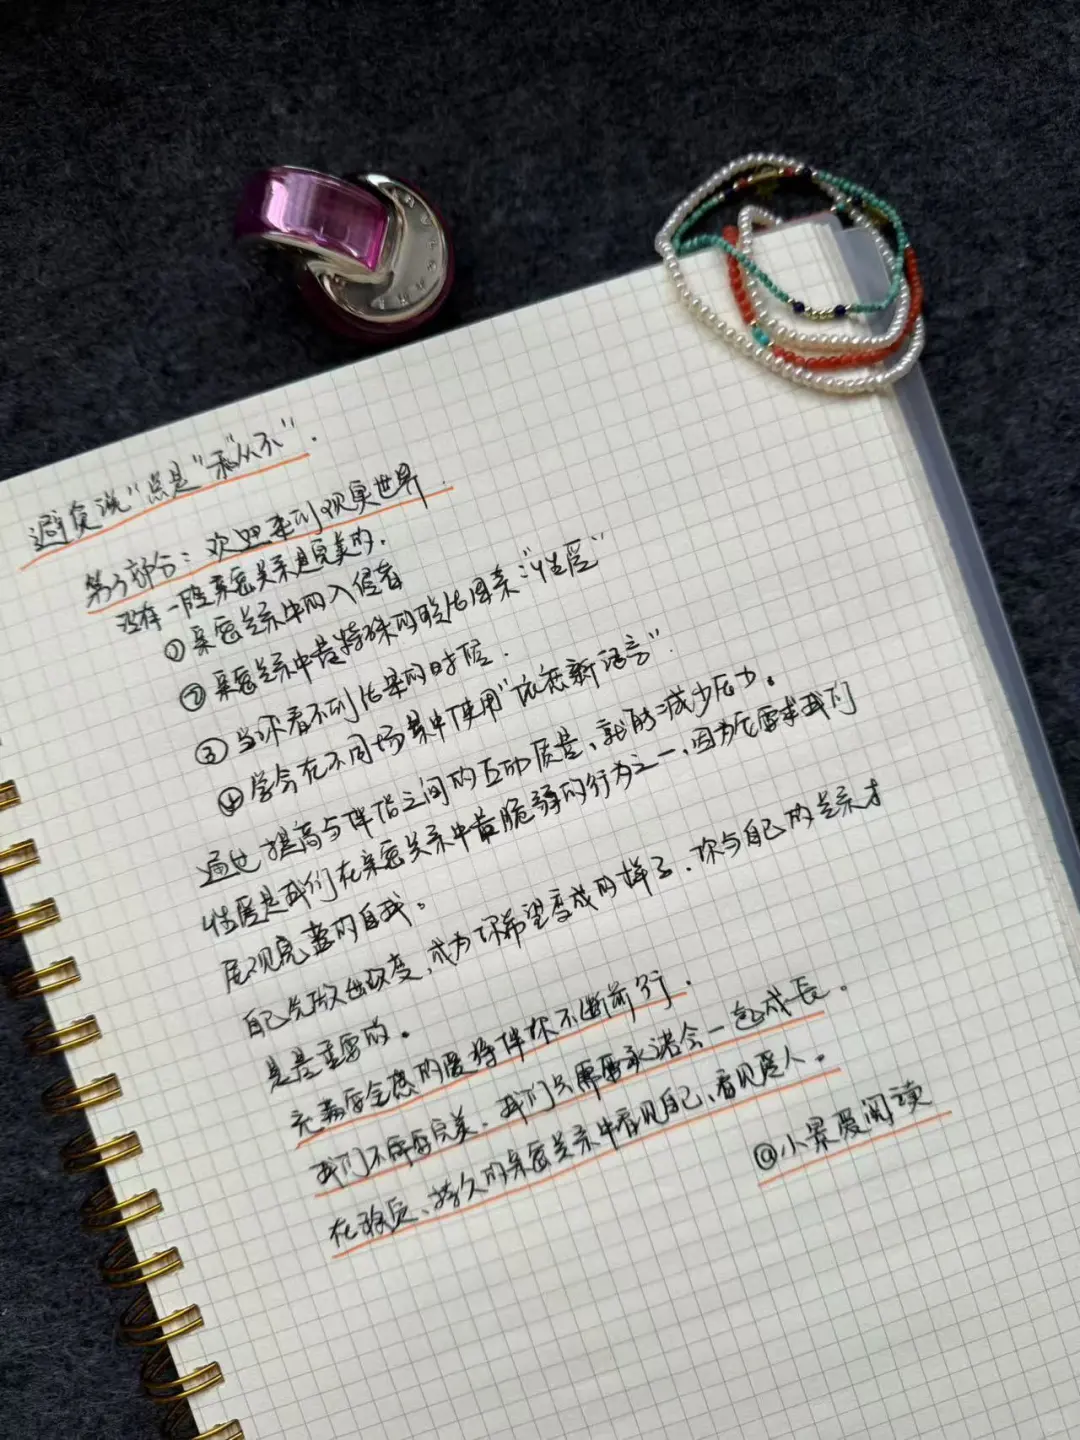 避免说"总是"和"从不".
第3部分: 欢迎来到现实世界.
没有一段亲密关系是完美的.
① 亲密关系中的入侵者
② 亲密关系中最特殊的联结因素:"性爱"
③ 当你看不到结果的时候.
④ 学会在不同场景中使用"依恋新语言".
通过提高与伴侣之间的互动质量、就能减少压力。
性爱是我们在亲密关系中最脆弱的行为之一,因为它需求我们
展现完整的自我。
自己先做出改变,成为你希望变成的样子.你与自己的关系才
是最重要的。
充满安全感的爱将伴你不断前行.
我们不需要完美.我们只需要承诺会一起成长.
在稳定、持久的亲密关系中看见自己、看见爱人.
@小景爱阅读